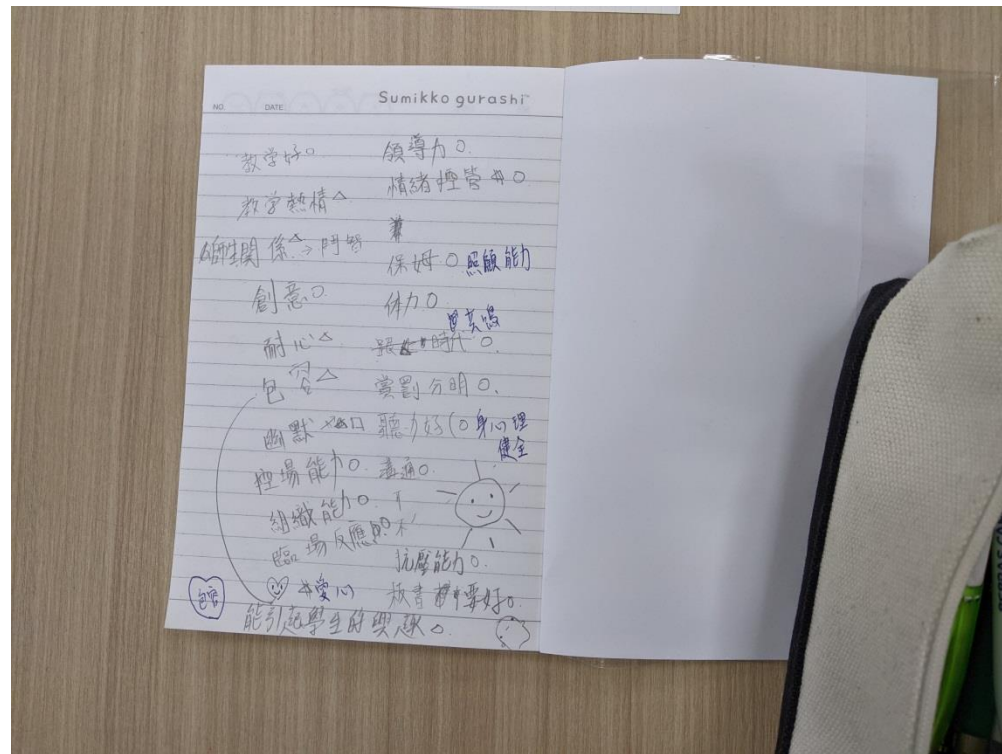 NO. DATE Sumikko gurashi
教学好○
教学熱情△
師生關係△→鬥智
創意○
耐心△
包容△
幽默 □
控場能力○
組織能力○
臨場反應○
愛心
包容
能引起學生的興趣△
領導力○
情緒控管 ○
保姆○ 照顧能力
体力○
時代○
賞罰分明○
聽力好(○ 身心理
健全
溝通○
抗壓能力○
板書 要好○